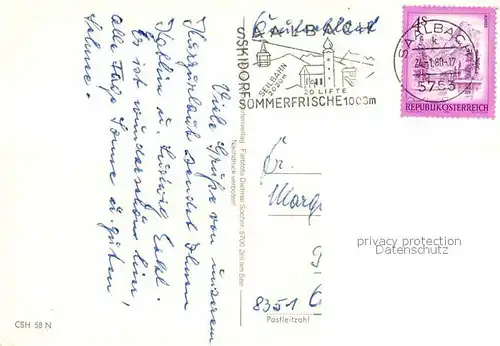 Viele Grüße von unserem
Kurzurlaub sendet Ihnen
Kathin u. Ludwig
Es ist wunderschön hier,
alle Tage Sonne u. guten
Schnee.
CSH 58 N
Farbfoto Dietmar Sochor, 5700 Zell am See
Nachdruck verboten!
SAALBACH
SKIDORF
SEILBAHN
2000m
20 LIFTE
SOMMERFRISCHE 1003m
SAALBACH
24.-1.80-17
5753
REPUBLIK ÖSTERREICH
8351
Postleitzahl
privacy protection
Datenschutz